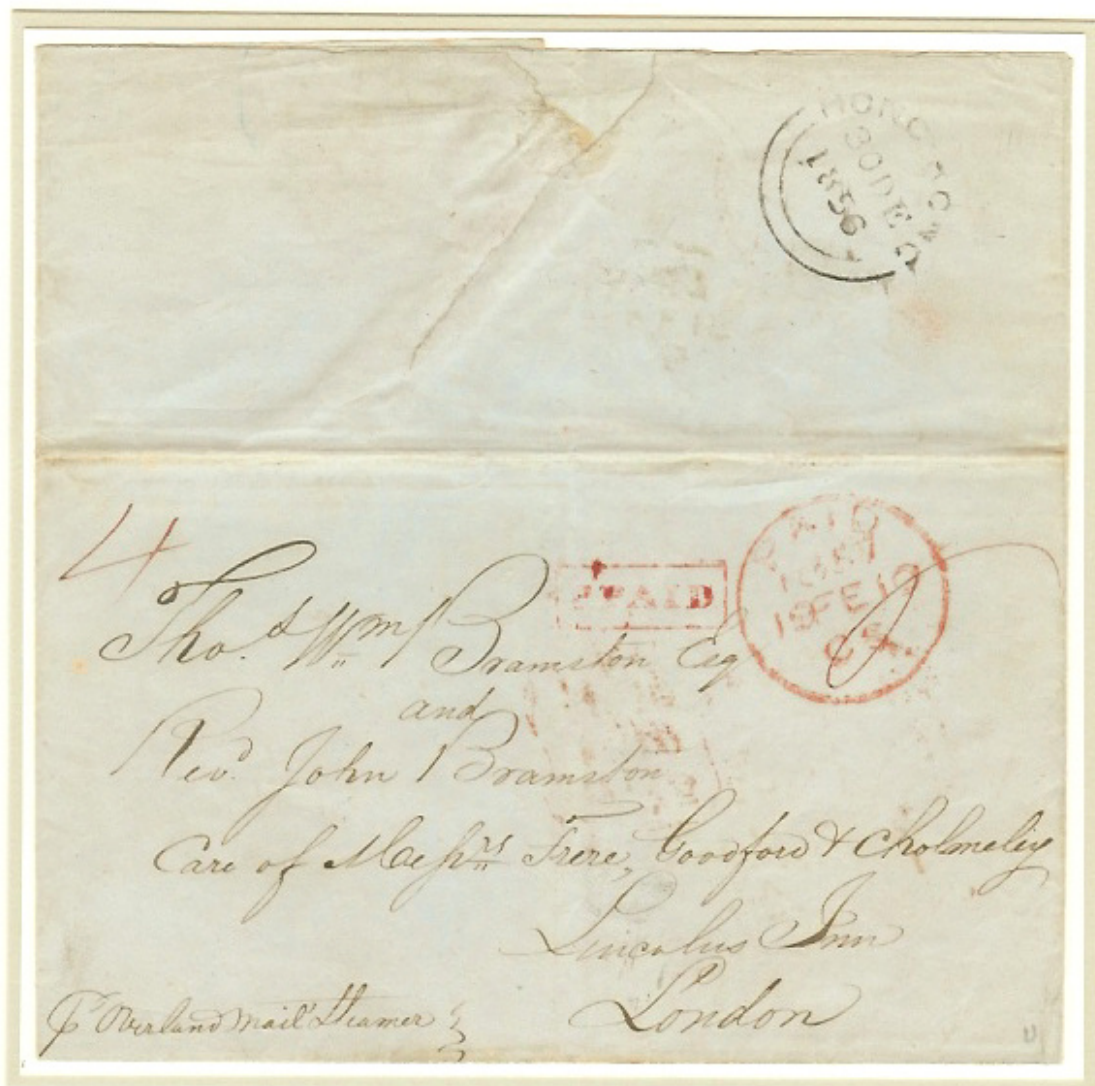 HONG KONG
30 DE
1856
4
PAID
PAID
1857
19 FE 19
Thos. Wm Bramston Esq
and
Revd John Bramston
Care of Messrs Frere, Goodford & Cholmeley
Lincolns Inn
London
pr Overland Mail Steamer